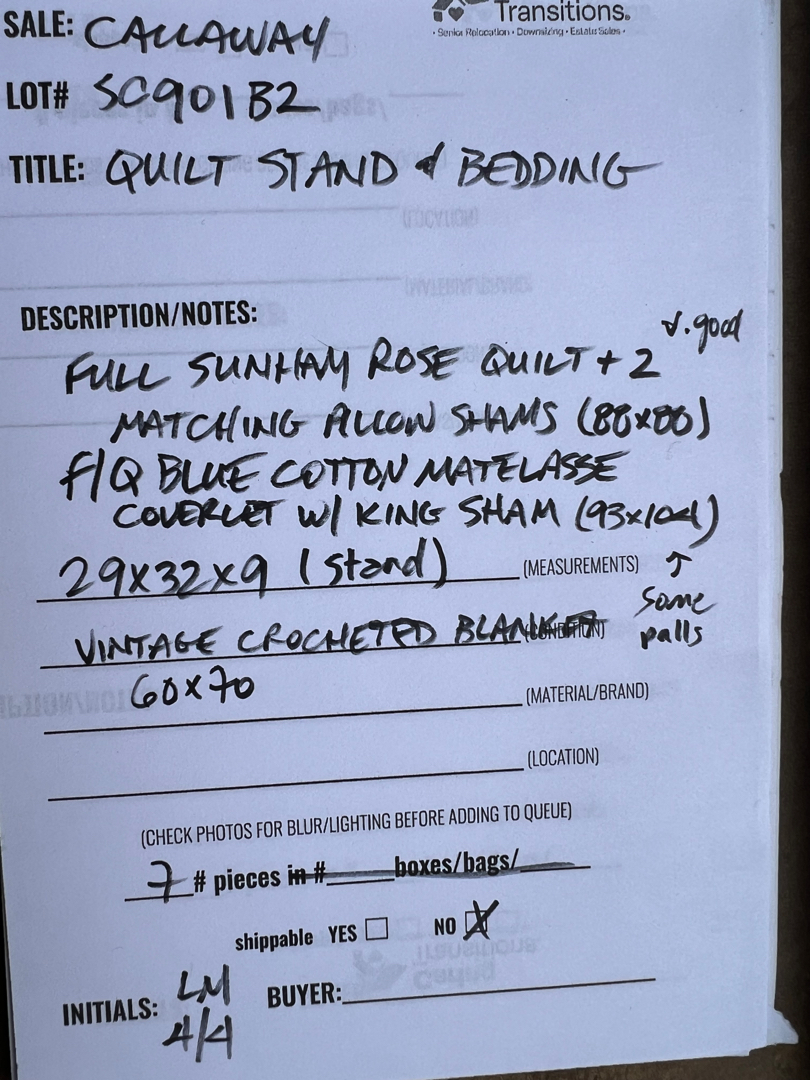 Transitions.
• Senior Relocation • Downsizing • Estate Sales •
SALE: CALLAWAY
LOT# SC901B2
TITLE: QUILT STAND & BEDDING
DESCRIPTION/NOTES:
v. good
FULL SUNHAM ROSE QUILT + 2
MATCHING PILLOW SHAMS (88x88)
F/Q BLUE COTTON MATELASSE
COVERLET W/ KING SHAM (93x104)
29x32x9 (stand) (MEASUREMENTS) ↑
some
palls
VINTAGE CROCHETED BLANKET (CONDITION)
60x70 (MATERIAL/BRAND)
(LOCATION)
(CHECK PHOTOS FOR BLUR/LIGHTING BEFORE ADDING TO QUEUE)
7 # pieces in # boxes/bags/
shippable YES NO X
INITIALS: LM BUYER:
4/4